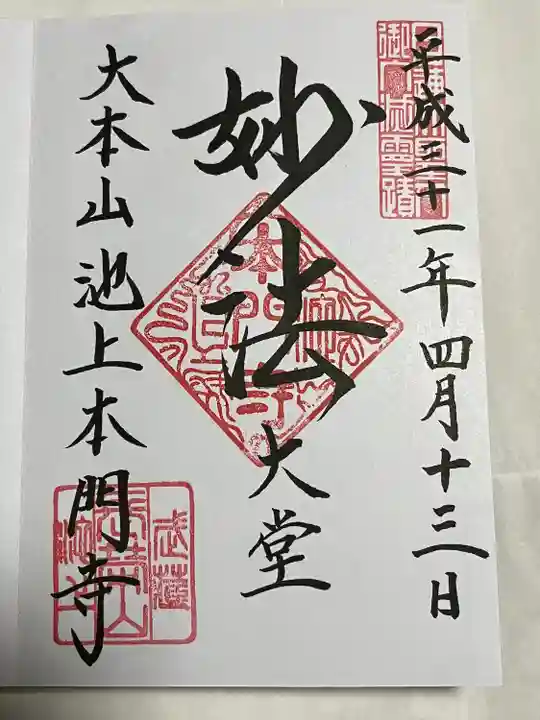 平成三十一年四月十三日
妙法
大堂
大本山池上本門寺